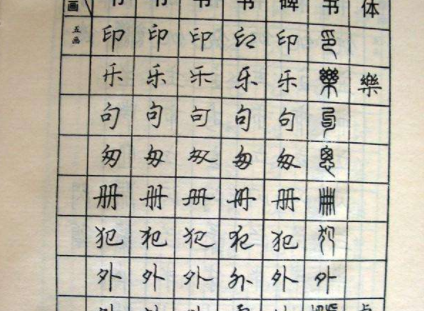 画 书 书 书 书 碑 书 体
五画 印 印 印 印 印 印
乐 乐 乐 乐 乐 樂 樂
句 句 句 句 句 句
匆 匆 匆 匆 匆 匆
册 册 册 册 册 册
犯 犯 犯 犯 犯 犯
外 外 外 外 外 外